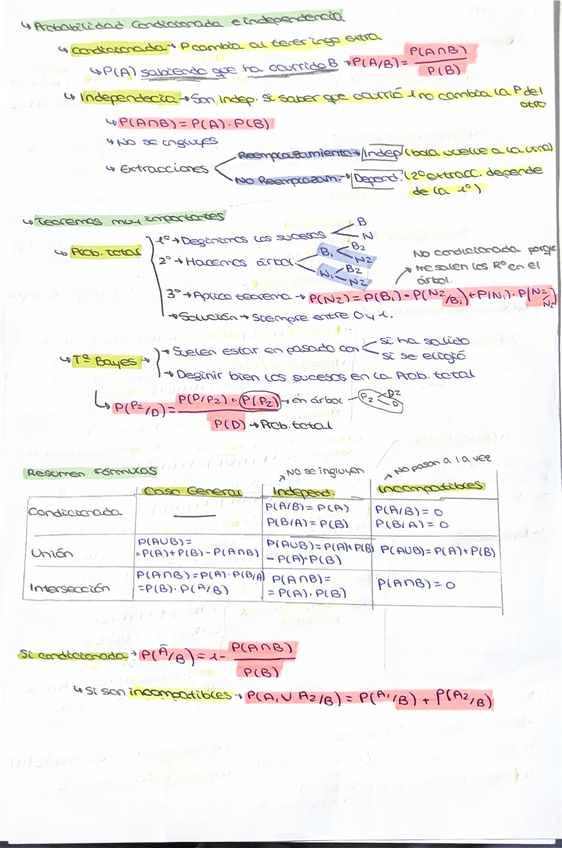 ↳ Probabilidad condicionada e independencia
↳ Condicionada → P cambia al tener info extra
↳ P(A) sabiendo que ha ocurrido B → P(A/B) = P(A∩B) / P(B)
↳ Independencia → Son indep. si saber que ocurrió 1 no cambia la P del otro
↳ P(A∩B) = P(A) · P(B)
↳ No se influyes
↳ Extracciones
Reemplazamiento → Indep (bola vuelve a la urna)
No Reemplazam. → Depend. (2º extracc. depende de la 1º)
↳ Teoremas muy importantes
↳ Prob. total
1º → Definimos los sucesos B N
2º → Hacemos árbol B₁ B₂ N₂ N₁ B₂ N₂
No condicionada porque me salen los Rº en el árbol.
3º → Aplico teorema → P(N2) = P(B₁) · P(N2/B₁) + P(N₁) · P(N2/N2)
→ Solución → Siempre entre 0 y 1.
↳ Tª Bayes
→ Suelen estar en pasado con si ha salido si se eligió
→ Definir bien los sucesos en la Prob. total
↳ P(P2/D) = P(D/P2) · P(P2) / P(D) → en árbol P2 D2 D
→ Prob. total
Resumen fórmulas
→ No se influyen
→ No pasan a la vez
Caso General Independ. Incompatibles
Condicionada — P(A/B) = P(A) P(A/B) = 0
P(B/A) = P(B) P(B/A) = 0
Unión P(A∪B) = P(A∪B) = P(A)+P(B) P(A∪B) = P(A)+P(B)
= P(A)+P(B) - P(A∩B) - P(A)·P(B)
Intersección P(A∩B) = P(A) · P(B/A) P(A∩B) = P(A∩B) = 0
= P(B) · P(A/B) = P(A) · P(B)
Si condicionada → P(Ā/B) = 1 - P(A∩B) / P(B)
↳ Si son incompatibles → P(A₁ ∪ A2/B) = P(A₁/B) + P(A2/B)